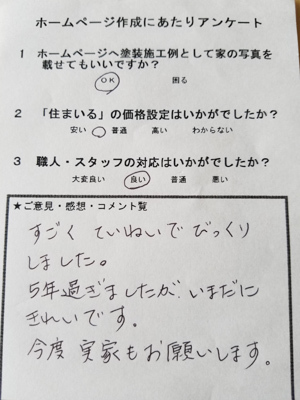 ホームページ作成にあたりアンケート
1 ホームページへ塗装施工例として家の写真を
載せてもいいですか?
OK 困る
2 「住まいる」の価格設定はいかがでしたか?
安い 普通 高い わからない
3 職人・スタッフの対応はいかがでしたか?
大変良い 良い 普通 悪い
★ご意見・感想・コメント覧
すごく ていねいで びっくり
しました。
5年過ぎましたが、いまだに
きれいです。
今度 実家もお願いします。